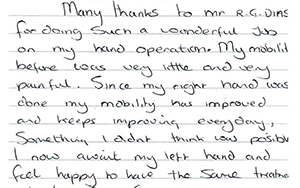 Many thanks to mr R.G. DIAS
for doing such a wonderful Job
on my hand operation. My mobilit
before was very little and very
painful. Since my right hand was
done my mobility has improved
and keeps improving everyday,
Something I didnt think was possibl
I now await my left hand and
feel happy to have the same treatme